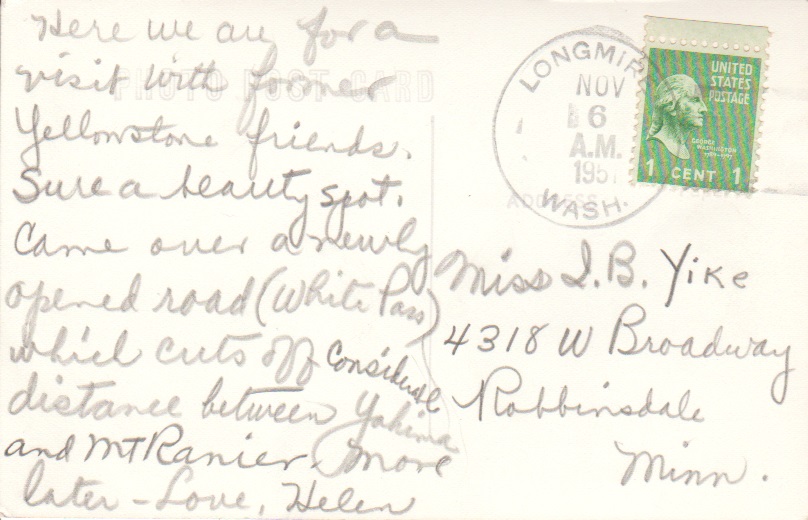 Here we are for a
visit with former
Yellowstone friends.
Sure a beauty spot.
Came over a newly
opened road (White Pass)
which cuts off considerable
distance between Yakima
and Mt Ranier. More
later - Love, Helen
PHOTO POST CARD
LONGMIRE
NOV
6
A.M.
195
WASH.
UNITED
STATES
POSTAGE
GEORGE
WASHINGTON
1 CENT 1
Miss I. B. Yike
4318 W Broadway
Robbinsdale
Minn.